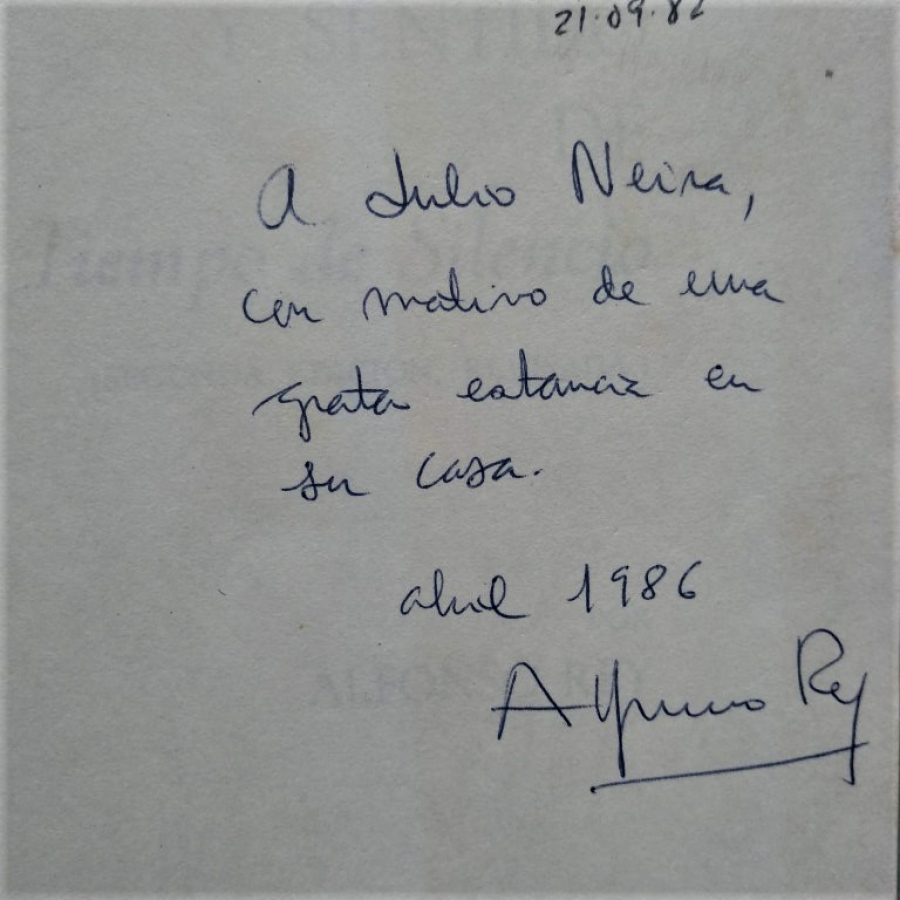 21.09.86
A Julio Neira,
con motivo de una
grata estancia en
su casa.
abril 1986
Alfonso Rey
Tiempo de Silencio